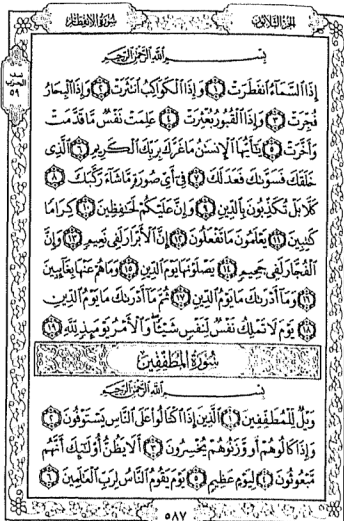 سورة الانفطار
الجزء الثلاثون
بسم الله الرحمن الرحيم
إِذَا ٱلسَّمَآءُ ٱنفَطَرَتْ ١ وَإِذَا ٱلْكَوَاكِبُ ٱنتَثَرَتْ ٢ وَإِذَا ٱلْبِحَارُ
فُجِّرَتْ ٣ وَإِذَا ٱلْقُبُورُ بُعْثِرَتْ ٤ عَلِمَتْ نَفْسٌ مَّا قَدَّمَتْ
وَأَخَّرَتْ ٥ يَٰٓأَيُّهَا ٱلْإِنسَٰنُ مَا غَرَّكَ بِرَبِّكَ ٱلْكَرِيمِ ٦ ٱلَّذِى
خَلَقَكَ فَسَوَّىٰكَ فَعَدَلَكَ ٧ فِىٓ أَىِّ صُورَةٍ مَّا شَآءَ رَكَّبَكَ ٨
كَلَّا بَلْ تُكَذِّبُونَ بِٱلدِّينِ ٩ وَإِنَّ عَلَيْكُمْ لَحَٰفِظِينَ ١٠ كِرَامًا
كَٰتِبِينَ ١١ يَعْلَمُونَ مَا تَفْعَلُونَ ١٢ إِنَّ ٱلْأَبْرَارَ لَفِى نَعِيمٍ ١٣ وَإِنَّ
ٱلْفُجَّارَ لَفِى جَحِيمٍ ١٤ يَصْلَوْنَهَا يَوْمَ ٱلدِّينِ ١٥ وَمَا هُمْ عَنْهَا بِغَآئِبِينَ
١٦ وَمَآ أَدْرَىٰكَ مَا يَوْمُ ٱلدِّينِ ١٧ ثُمَّ مَآ أَدْرَىٰكَ مَا يَوْمُ ٱلدِّينِ
١٨ يَوْمَ لَا تَمْلِكُ نَفْسٌ لِّنَفْسٍ شَيْـًٔا وَٱلْأَمْرُ يَوْمَئِذٍ لِّلَّهِ ١٩
سُورَةُ المُطَفِّفِينَ
بسم الله الرحمن الرحيم
وَيْلٌ لِّلْمُطَفِّفِينَ ١ ٱلَّذِينَ إِذَا ٱكْتَالُوا۟ عَلَى ٱلنَّاسِ يَسْتَوْفُونَ ٢
وَإِذَا كَالُوهُمْ أَو وَّزَنُوهُمْ يُخْسِرُونَ ٣ أَلَا يَظُنُّ أُو۟لَٰٓئِكَ أَنَّهُم
مَّبْعُوثُونَ ٤ لِيَوْمٍ عَظِيمٍ ٥ يَوْمَ يَقُومُ ٱلنَّاسُ لِرَبِّ ٱلْعَٰلَمِينَ ٦
٥٨٧